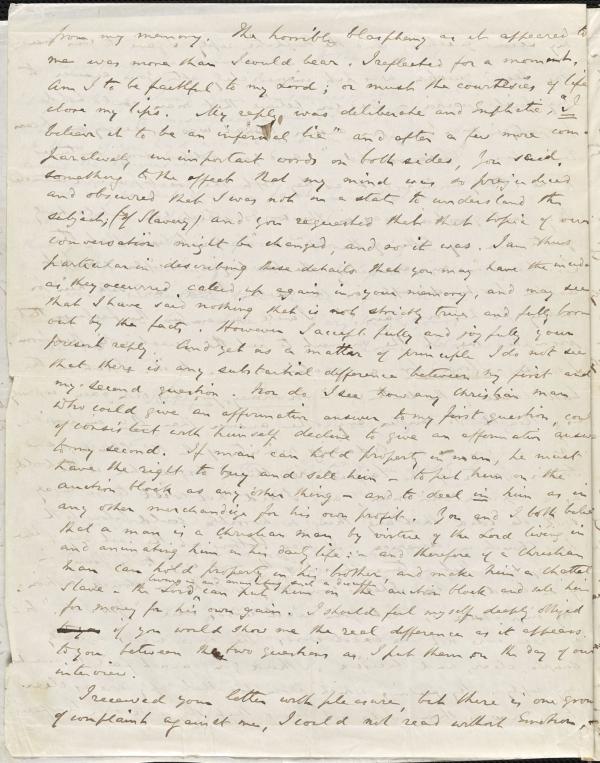 from my memory. The horrible blasphemy as it appeared to
me was more than I could bear. I reflected for a moment,
Am I to be faithful to my Lord; or must the courtesies of life
close my lips. My reply was deliberate and Emphatic, "I
believe it to be an infernal lie" and after a few more com-
paratively unimportant words on both sides, You said,
something to the effect that my mind was so prejudiced
and obscured that I was not in a state to understand the
subject, (of Slavery) and you requested that that topic of our
conversation might be changed, and so it was. I am thus
particular in describing these details that you may have the
as they occurred called up again in your memory, and may see
that I have said nothing that is not strictly true and fully born
out by the facts. However I accept fully and joyfully your
present reply. And yet as a matter of principle I do not see
that there is any substantial difference between my first and
my second question. Nor do I see how any Christian man
who could give an affirmative answer to my first question, could
if consistent with himself decline to give an affirmative answer
to my second. If man can hold property in man, he must
have the right to buy and sell him - to put him on the
auction block as any other thing - and to deal in him as in
any other merchandize for his own profit. You and I both believe
that a man is a Christian man by virtue of the Lord living in
and animating him in his daily life: - and therefore if a Christian
man can hold property in his brother, and make him a chattel
living in and animating such a
Slave - the Lord can put him on the auction block and sell him
for money for his own gain. I should feel myself deeply obliged
if you would show me the real difference as it appears
to you between the two questions as I put them on the day of our
interview.
I received your letter with pleasure, but there is one ground
of complaint against me, I could not read without Emotion, -